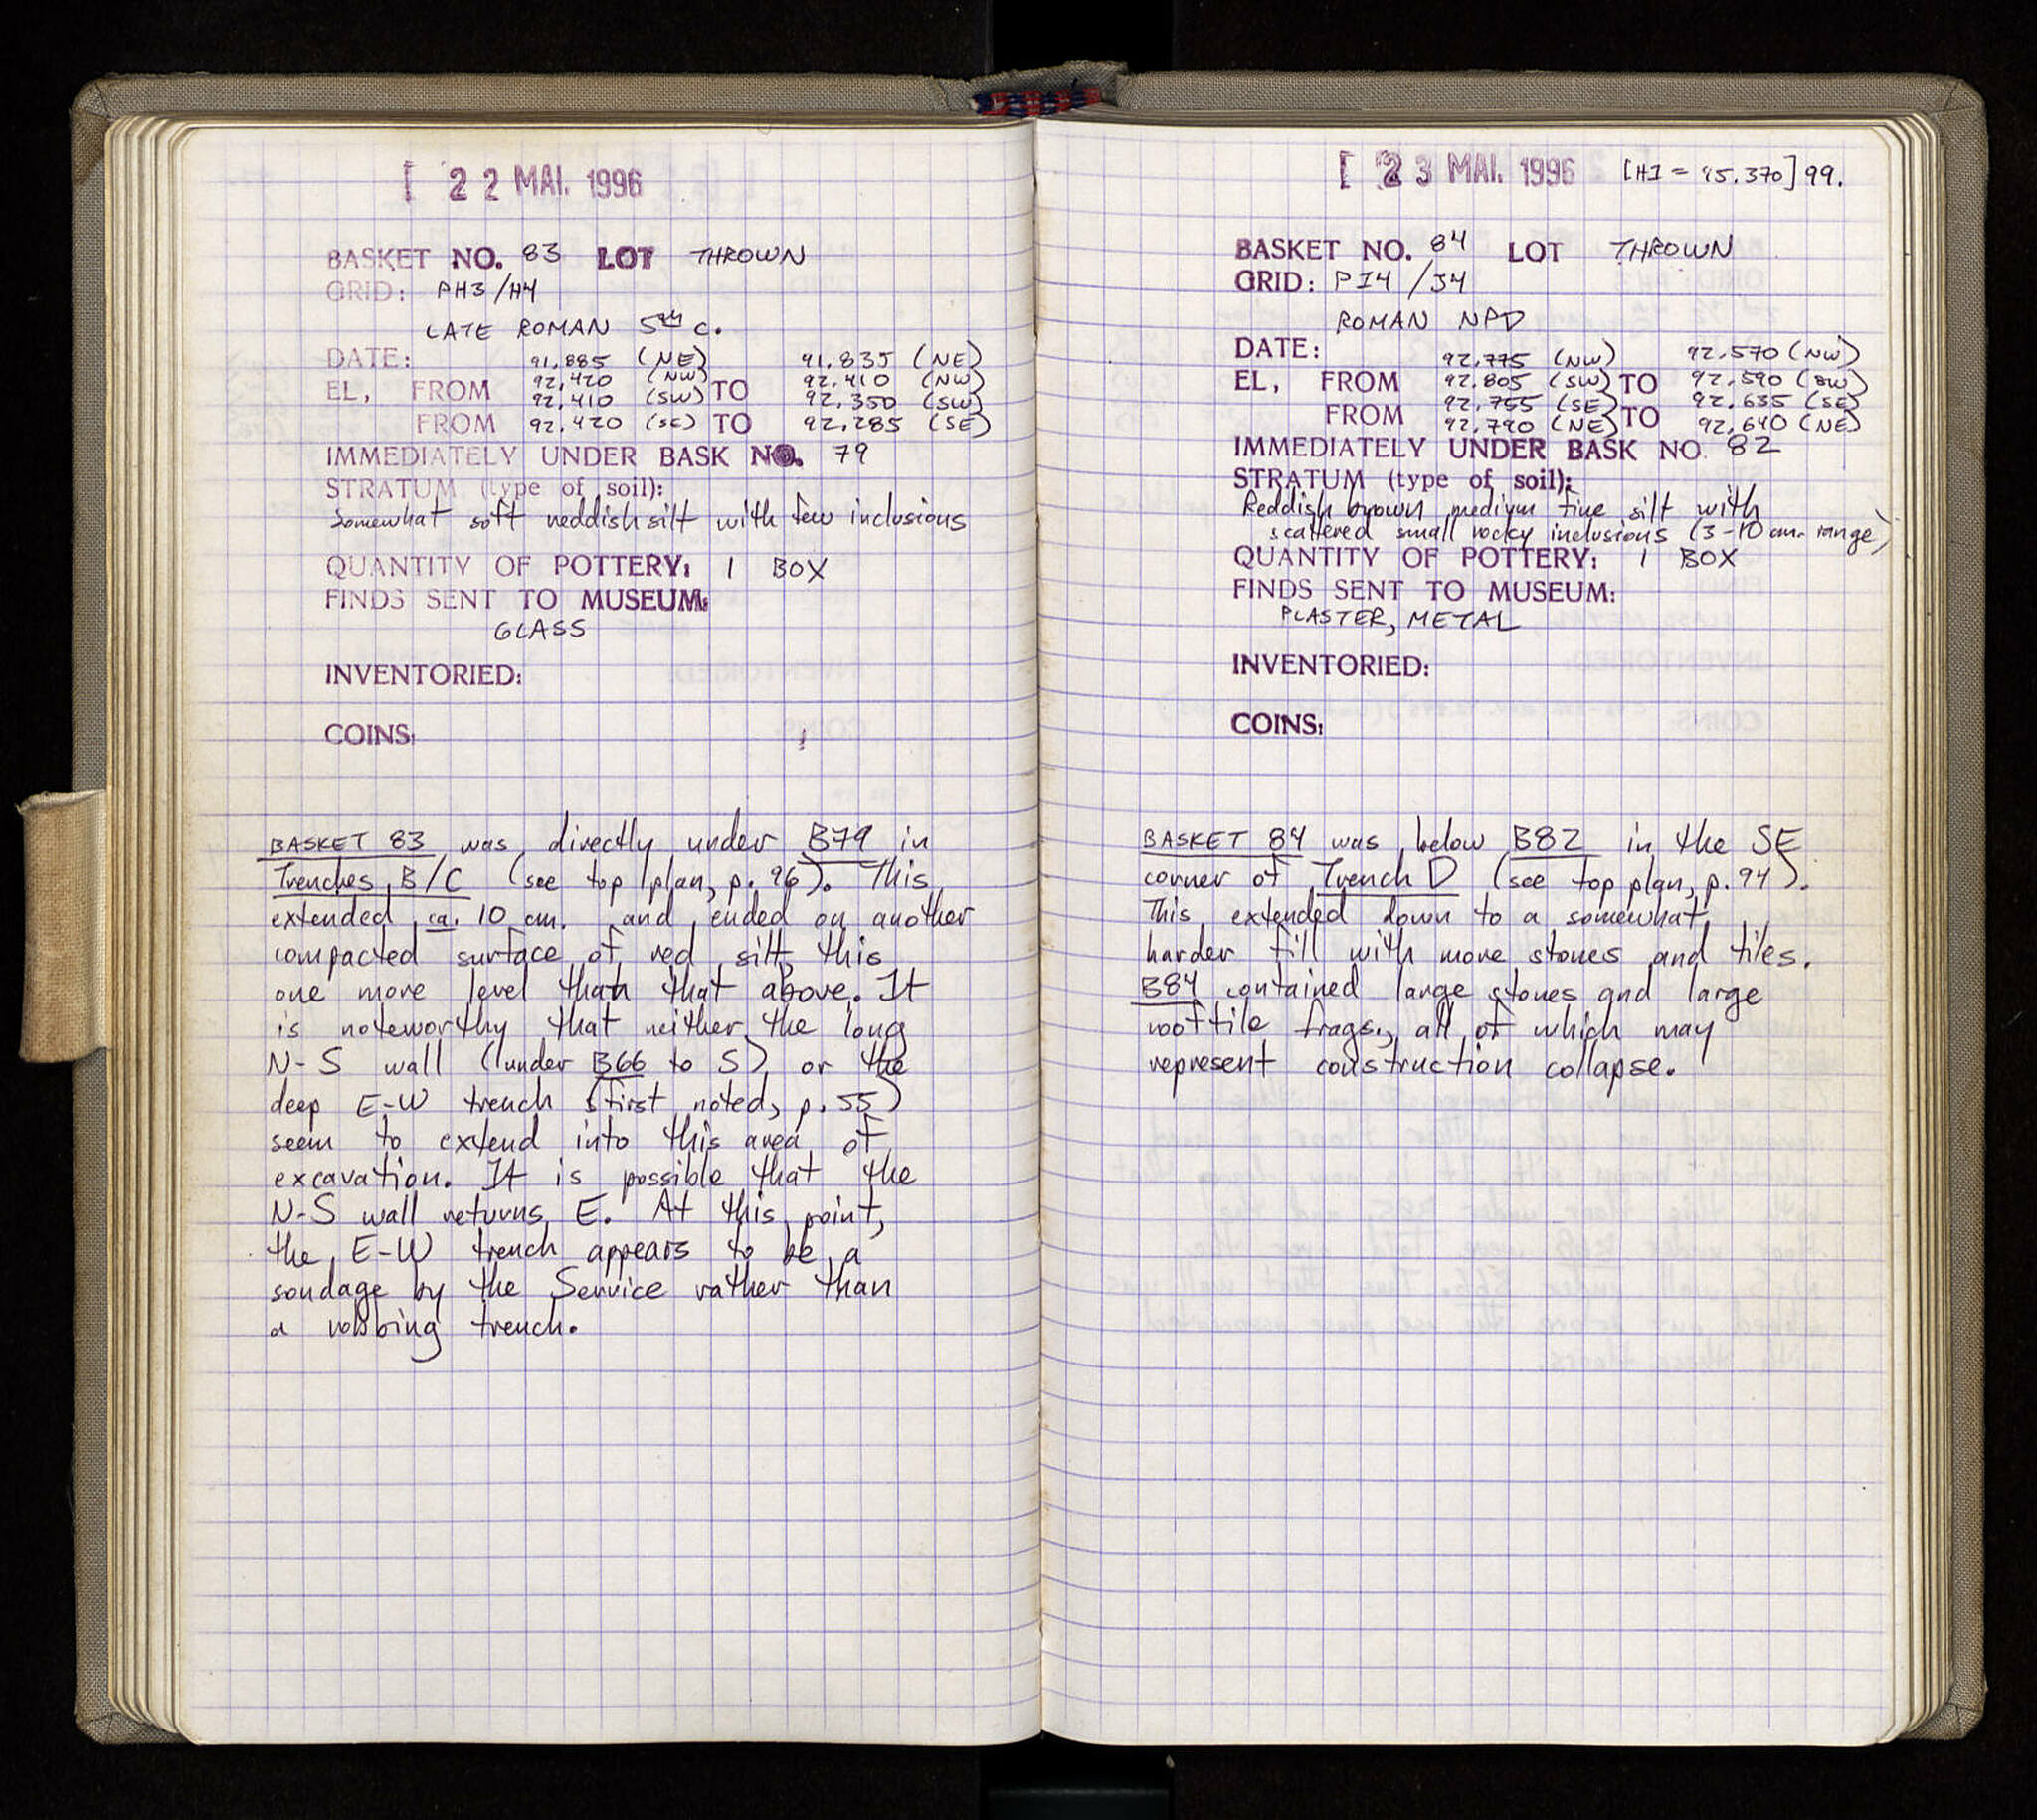 [ 22 MAI. 1996
BASKET NO. 83 LOT THROWN
GRID: PH3/H4
LATE ROMAN 5th c.
DATE: 91.885 (NE) 91.835 (NE)
92.420 (NW) 92.410 (NW)
EL, FROM 92.410 (SW) TO 92.350 (SW)
FROM 92.420 (SE) TO 92.285 (SE)
IMMEDIATELY UNDER BASK NO. 79
STRATUM (type of soil):
Somewhat soft reddish silt with few inclusions
QUANTITY OF POTTERY: 1 BOX
FINDS SENT TO MUSEUM:
GLASS
INVENTORIED:
COINS:
BASKET 83 was directly under B79 in
Trenches B/C (see top plan, p. 96). This
extended ca. 10 cm. and ended on another
compacted surface of red silt, this
one more level than that above. It
is noteworthy that neither the long
N-S wall (under B66 to S) or the
deep E-W trench (first noted, p. 55)
seem to extend into this area of
excavation. It is possible that the
N-S wall returns E. At this point,
the E-W trench appears to be a
sondage by the Service rather than
a robbing trench.
[ 23 MAI. 1996 [HI = 95.370] 99.
BASKET NO. 84 LOT THROWN
GRID: PI4/J4
ROMAN NPD
DATE: 92.775 (NW) 92.570 (NW)
EL, FROM 92.805 (SW) TO 92.590 (SW)
92.755 (SE) 92.635 (SE)
FROM 92.790 (NE) TO 92.640 (NE)
IMMEDIATELY UNDER BASK NO. 82
STRATUM (type of soil):
Reddish brown medium fine silt with
scattered small rocky inclusions (3-10 cm. range)
QUANTITY OF POTTERY: 1 BOX
FINDS SENT TO MUSEUM:
PLASTER, METAL
INVENTORIED:
COINS:
BASKET 84 was below B82 in the SE
corner of Trench D (see top plan, p. 94).
This extended down to a somewhat
harder fill with more stones and tiles.
B84 contained large stones and large
rooftile frags., all of which may
represent construction collapse.